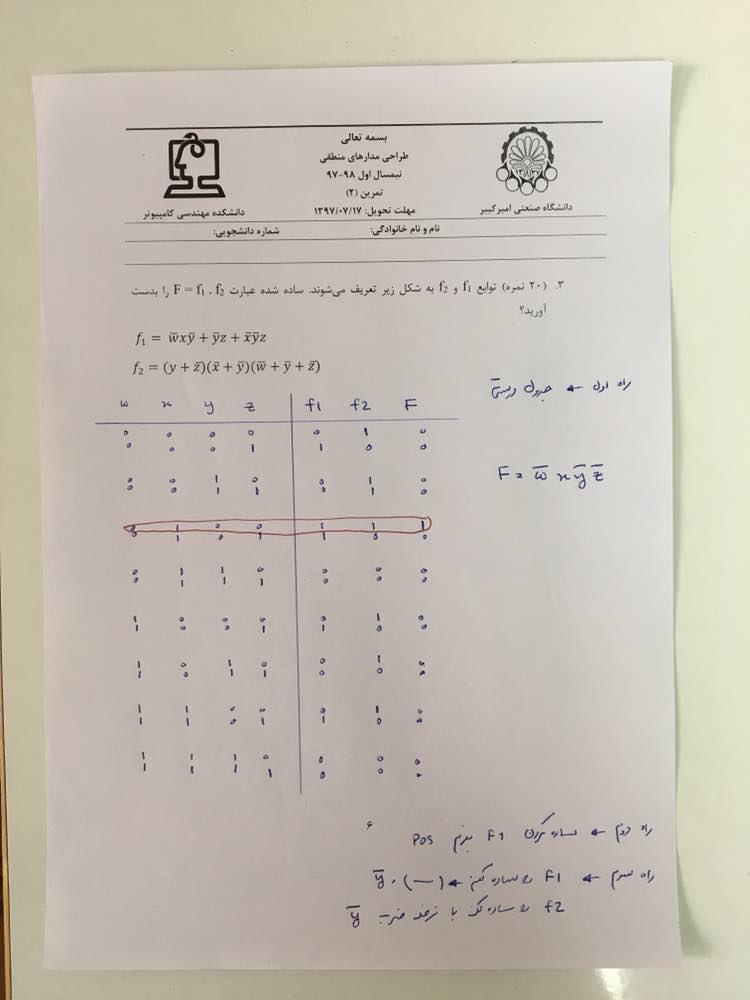 بسمه تعالی
طراحی مدارهای منطقی
نیمسال اول ۹۸-۹۷
تمرین (۲)
مهلت تحویل: ۱۳۹۷/۰۷/۱۷
دانشگاه صنعتی امیرکبیر
دانشکده مهندسی کامپیوتر
نام و نام خانوادگی: شماره دانشجویی:
۳. (۲۰ نمره) توابع f₁ و f₂ به شکل زیر تعریف می‌شوند. ساده شده عبارت F = f₁ . f₂ را بدست
آورید؟
f₁ = w̅xy̅ + y̅z + x̅y̅z
f₂ = (y + z̅)(x̅ + y̅)(w̅ + y̅ + z̅)
راه اول ← جدول درستی
w x y z f1 f2 F
0 0 0 0 0 1 0
0 0 0 1 1 0 0
0 0 1 0 0 1 0
0 0 1 1 0 1 0
0 1 0 0 1 1 1
0 1 0 1 1 0 0
0 1 1 0 0 0 0
0 1 1 1 0 0 0
1 0 0 0 0 1 0
1 0 0 1 1 0 0
1 0 1 0 0 1 0
1 0 1 1 0 0 0
1 1 0 0 0 1 0
1 1 0 1 1 0 0
1 1 1 0 0 0 0
1 1 1 1 0 0 0
F = w̅ x y̅ z̅
راه دوم ← ساده کردن F1 بفرم POS
راه سوم ← F1 رو ساده کنیم ← (—) . y̅
f2 رو ساده کن با ضرب y̅